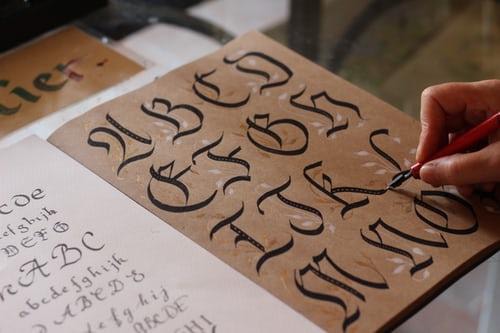 ABCD
EFGH
IJKL
MNO
cDe
fghijk
DEFG
ABC
abcdefghijk
ABCDE
efghij
ABCDE
GHI